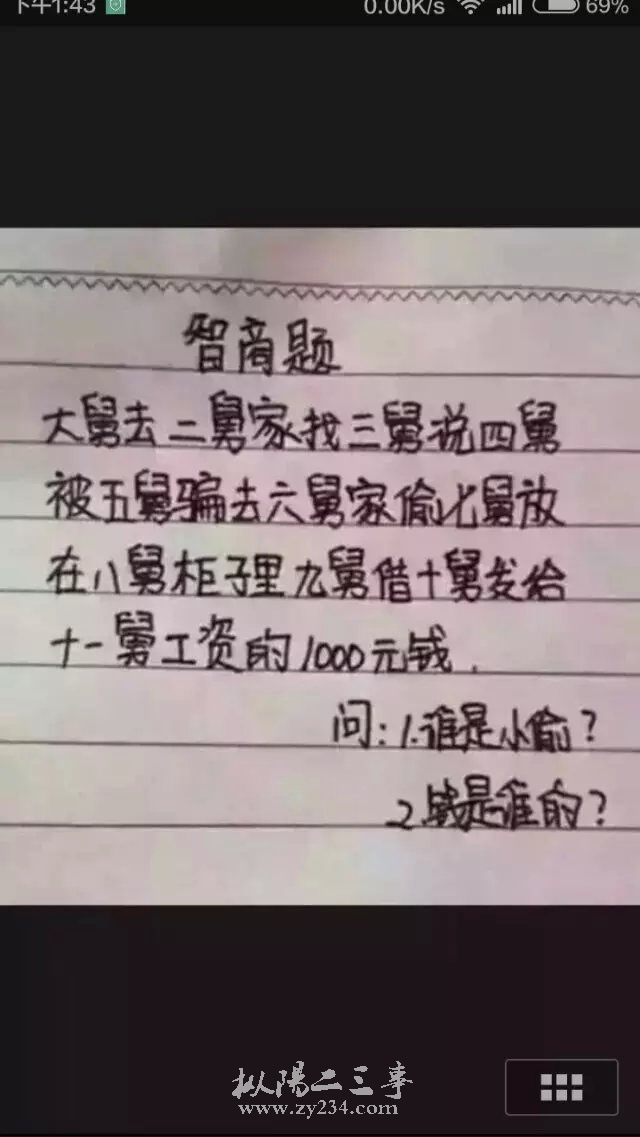 下午1:43
0.00K/s
69%
智商题
大舅去二舅家找三舅说四舅
被五舅骗去六舅家偷七舅放
在八舅柜子里九舅借十舅发给
十一舅工资的1000元钱.
问:1.谁是小偷?
2.钱是谁的?
枞陽二三事
www.zy234.com